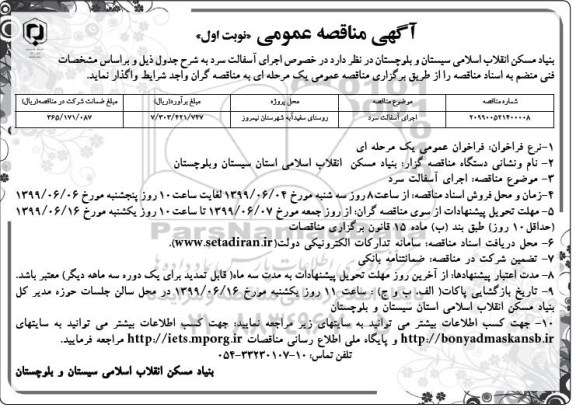 آگهی مناقصه عمومی «نوبت اول»
بنیاد مسکن انقلاب اسلامی سیستان و بلوچستان در نظر دارد در خصوص اجرای آسفالت سرد به شرح جدول ذیل و براساس مشخصات
فنی منضم به اسناد مناقصه را از طریق برگزاری مناقصه عمومی یک مرحله ای به مناقصه گران واجد شرایط واگذار نماید.
شماره مناقصه موضوع مناقصه محل پروژه مبلغ برآورد(ریال) مبلغ ضمانت شرکت در مناقصه(ریال)
۲۰۹۹۰۰۵۲۱۴۰۰۰۰۸ اجرای آسفالت سرد روستای سفیدآبه شهرستان نیمروز ۷/۳۰۳/۴۲۱/۷۴۷ ۳۶۵/۱۷۱/۰۸۷
۱-نرع فراخوان: فراخوان عمومی یک مرحله ای
۲- نام ونشانی دستگاه مناقصه گزار: بنیاد مسکن انقلاب اسلامی استان سیستان وبلوچستان
۳- موضوع مناقصه: اجرای آسفالت سرد
۴-زمان و محل فروش اسناد مناقصه: از ساعت۸ روز سه شنبه مورخ ۱۳۹۹/۰۶/۰۴ لغایت ساعت ۱۰ روز پنجشنبه مورخ ۱۳۹۹/۰۶/۰۶
۵- مهلت تحویل پیشنهادات از سوی مناقصه گران: از روز جمعه مورخ ۱۳۹۹/۰۶/۰۷ تا ساعت ۱۰ روز یکشنبه مورخ ۱۳۹۹/۰۶/۱۶
(حداقل ۱۰ روز) طبق بند (ب) ماده ۱۵ قانون برگزاری مناقصات
۶- محل دریافت اسناد مناقصه: سامانه تدارکات الکترونیکی دولت(www.setadiran.ir).
۷- تضمین شرکت در مناقصه: ضمانتنامه بانکی
۸- مدت اعتبار پیشنهادها: از آخرین روز مهلت تحویل پیشنهادات به مدت سه ماه( قابل تمدید برای یک دوره سه ماهه دیگر) معتبر باشد.
۹- تاریخ بازگشایی پاکات( الف، ب و ج) : ساعت ۱۱ روز یکشنبه مورخ ۱۳۹۹/۰۶/۱۶ در محل سالن جلسات حوزه مدیر کل
بنیاد مسکن انقلاب اسلامی استان سیستان و بلوچستان
۱۰- جهت کسب اطلاعات بیشتر می توانید به سایتهای زیر مراجعه نمایید: جهت کسب اطلاعات بیشتر می توانید به سایتهای
http://bonyadmaskansb.ir و پایگاه ملی اطلاع رسانی مناقصات http://iets.mporg.ir مراجعه فرمایید.
تلفن تماس: ۱۰-۳۳۲۳۰۱۰۷-۰۵۴
بنیاد مسکن انقلاب اسلامی سیستان و بلوچستان